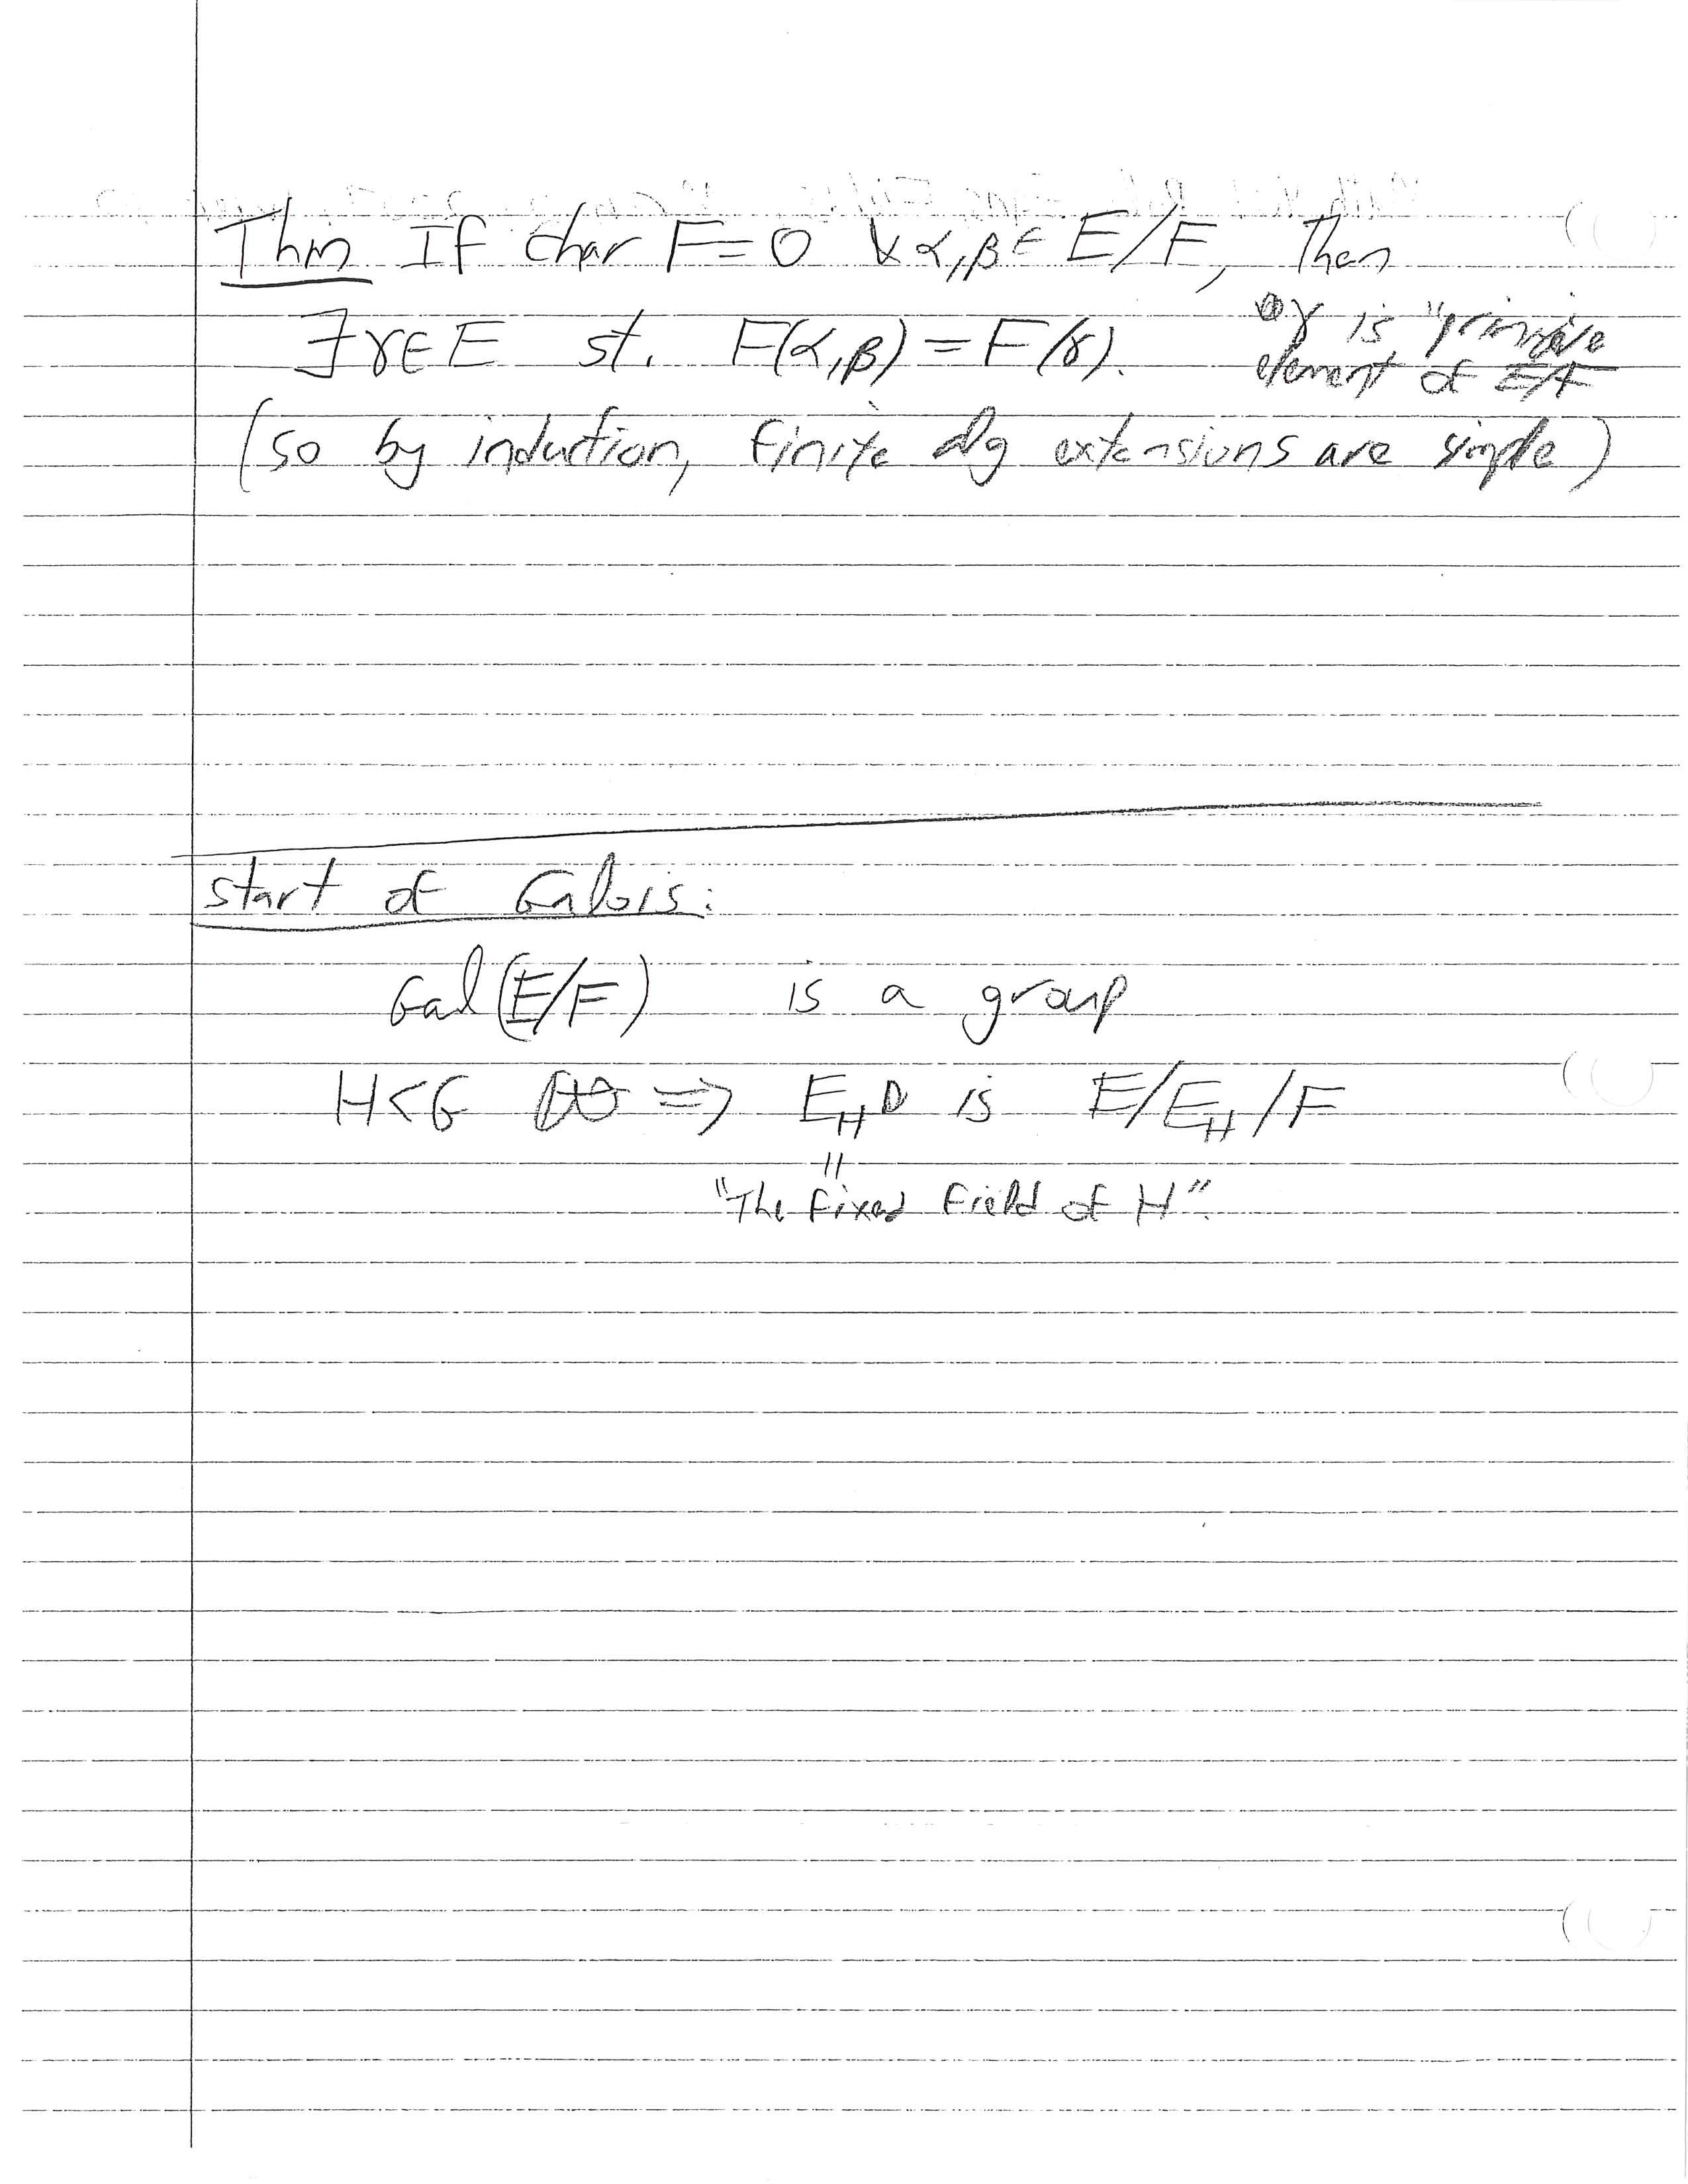 Thm If char F=0 ∀ α,β ∈ E/F, Then
∃γ∈E st. F(α,β)=F(γ).
γ is "primitive
element of E/F
(so by induction, finite alg extensions are simple)
start of Galois:
Gal(E/F) is a group
H<G ⇒ E_H is E/E_H/F
"
"The fixed field of H".